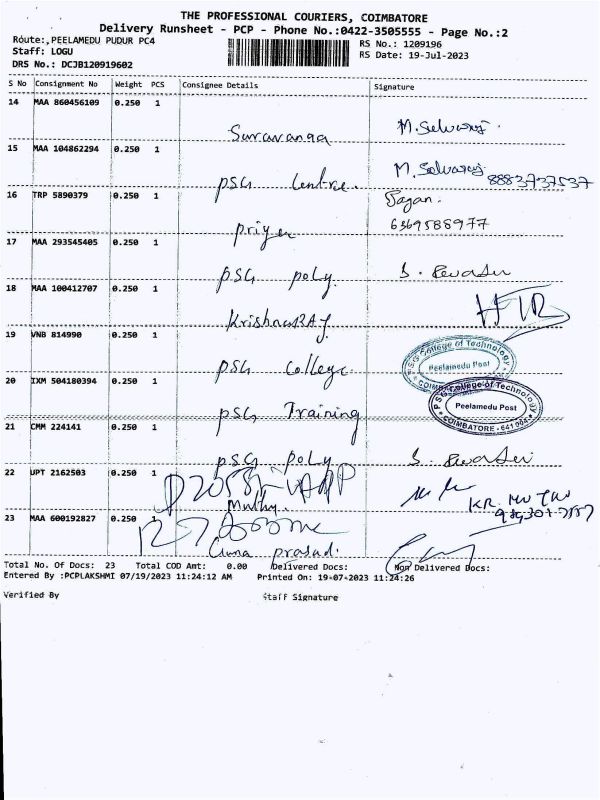 THE PROFESSIONAL COURIERS, COIMBATORE
Delivery Runsheet - PCP - Phone No.:0422-3505555 - Page No.:2
Route:,PEELAMEDU PUDUR PC4
Staff: LOGU
DRS No.: DCJB120919602
RS No.: 1209196
RS Date: 19-Jul-2023
S No Consignment No Weight PCS Consignee Details Signature
14 MAA 860456109 0.250 1
M. Selvaraj.
15 MAA 104862294 0.250 1
PSG Centre. M. Selvaraj. 8883737537
16 TRP 5890379 0.250 1
Priya Jagan. 6369588977
17 MAA 293545405 0.250 1
PSG poly.
18 MAA 100412707 0.250 1
KrishnaRAJ
19 VNB 814990 0.250 1
PSG College.
P.S.G College of Technology
Peelamedu Post
20 IXM 504180394 0.250 1
PSG Training
P.S.G College of Technology
Peelamedu Post
COIMBATORE - 641 004
21 CMM 224141 0.250 1
PSG poly
22 UPT 2162503 0.250 1
Muthu.
23 MAA 600192827 0.250
prasad.
Total No. Of Docs: 23 Total COD Amt: 0.00 Delivered Docs: Non Delivered Docs:
Entered By :PCPLAKSHMI 07/19/2023 11:24:12 AM Printed On: 19-07-2023 11:24:26
Verified By Staff Signature